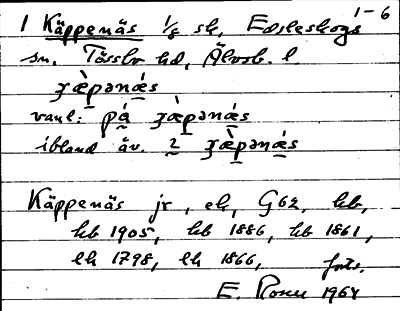 1-6
1 Käppenäs 1/8 sk, Edsleskogs
sn. Tössbo hd, Älvsb. l.
ɣæ̀pənás
vanl: på ɣæ̀pənǽs
ibland äv. 2 ɣæ̀pənǽs
Käppenäs jr, ek, G62, kb,
kb 1905, kb 1886, kb 1861,
lk 1798, lk 1866, forts.
E. 1964